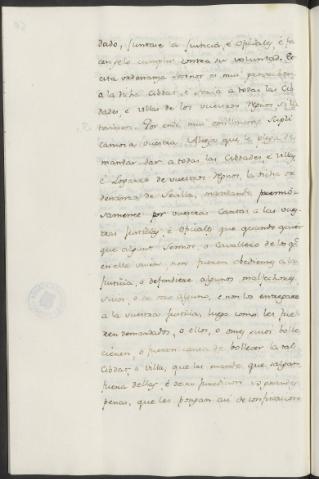 dado, juntase la Justicia, è Oficiales, è fa
censelo cumplir contra su voluntad. E
esta ordenanza Señor es mui provechosa
a la dicha Cibdad, è seria a todas las Cib
dades, è villas de los vuestros Regnos
Por ende mui omillmente supli
camos a vuestra Alteza que le plega de
mandar dar a todas las Cibdades, è villas
è Logares de vuestros Regnos, la dicha or
denanza de Sevilla, mandando premio
samente por vuestras Cartas a las vues
tras Justicias, è Oficiales, que quando quier
que algunt Señor, o Cavallero de los que
en ella viven, non fueren obedientes a la
Justicia, o defendiere algunos malfechores,
suyos, o de otro alguno, è non los entregare
a la vuestra Justicia, luego como les fue
ren demandados, o ellos, o omes suyos bolle
cieren, o fueren causa de bollecer la tal
Cibdat, o villa, que les manden que salgan
fuera dellas, è de su juredicion so grandes
penas, que les pongan asi de confiscacion